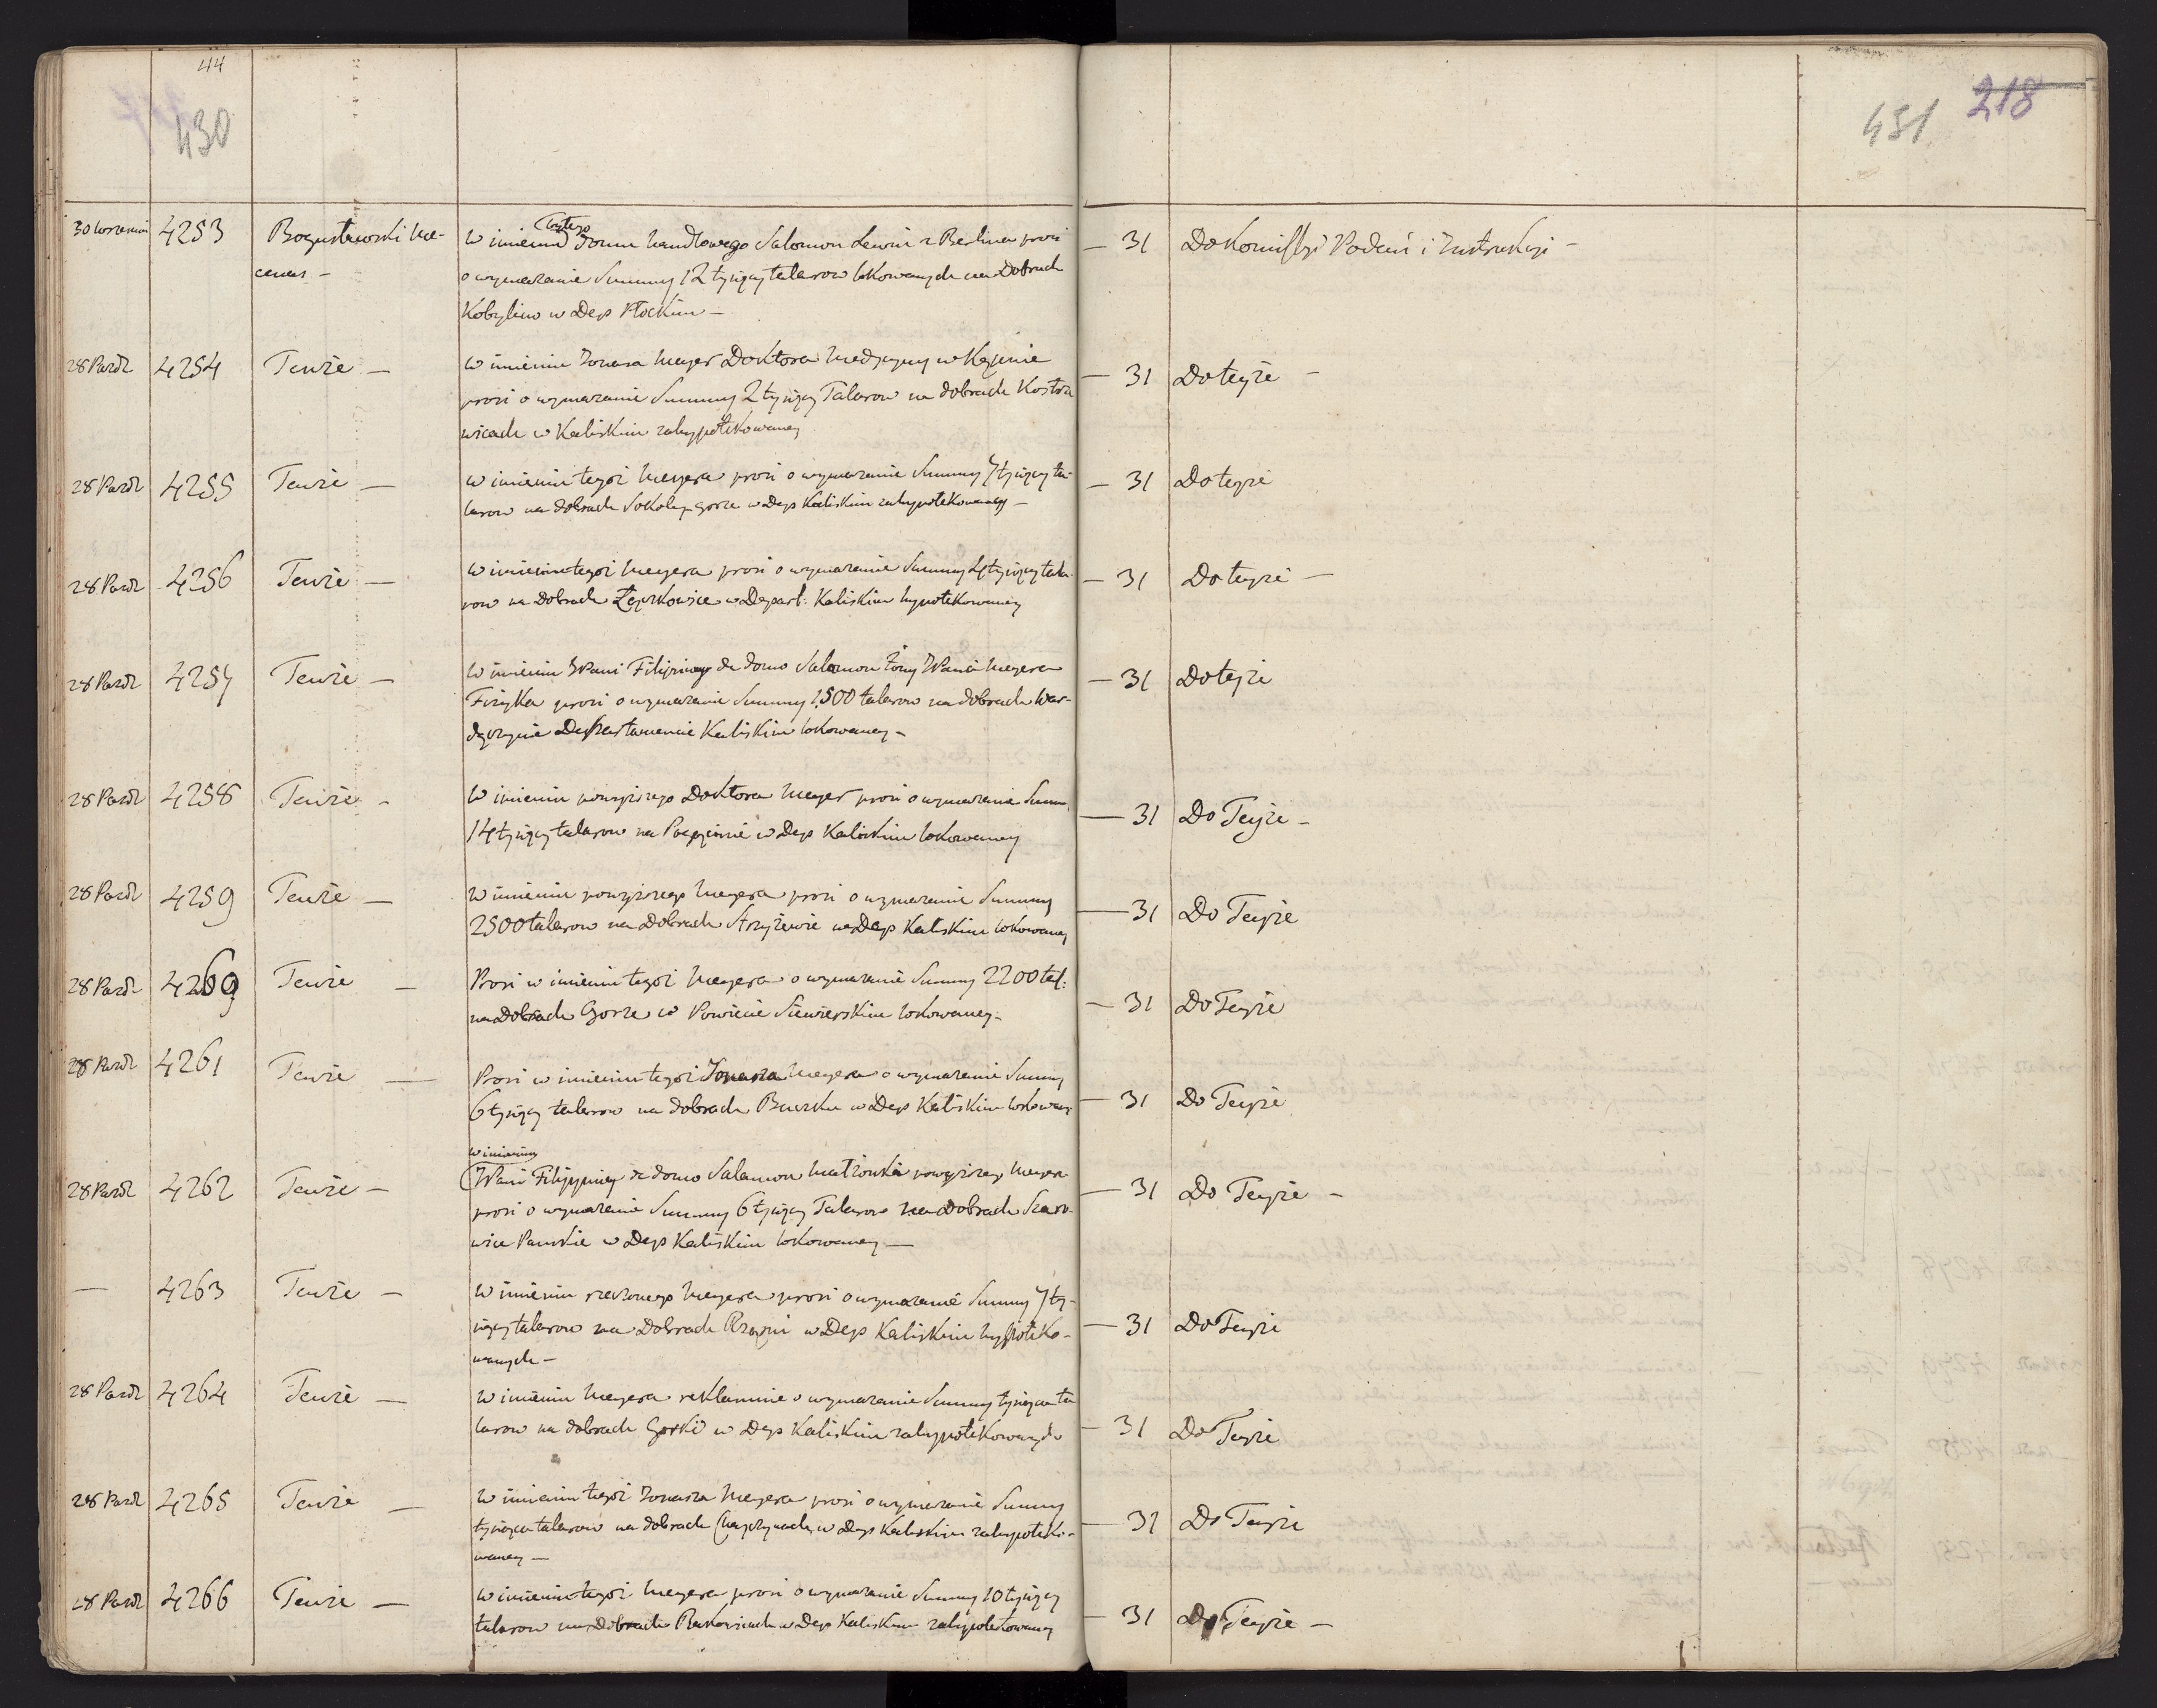 44
430
431 218
30 4253 Bogusławski Me-
cenas –
byłego
W imieniu Domu handlowego Salomon Lewin z Berlina prosi
o wymazanie Summy 12 tysięcy talarow lokowanych na Dobrach
Kobylino w Dep Płockim –
– 31 Do Komissyi Podań i Instrukcyi –
28 Paźdz 4254 Tenże –
W imieniu Jonasa Meyer Doktora Medycyny w Kępinie
prosi o wymazanie Summy 2 tysięcy Talarow na dobrach Kostrz
wicach w Kaliskim zahypotekowaney
– 31 Do teyże –
28 Paźdz 4255 Tenże –
W imieniu tegoż Meyera prosi o wymazanie Summy 7 tysięcy ta-
larow na dobrach Sokoley gorze w Dep Kaliskim zahypotekowaney –
– 31 Do teyże
28 Paźdz 4256 Tenże –
W imieniu tegoż Meyera prosi o wymazanie Summy 4 tysięcy tala-
row na Dobrach w Depart: Kaliskim hypotekowaney
– 31 Do teyże –
28 Paźdz 4257 Tenże –
W imieniu JPani Filipiney de domo Salamon żony JPana Meyera
Fizyka prosi o wymazanie Summy 1,500 talarow na dobrach War-
dęzynie Departamencie Kaliskim lokowaney –
– 31 Do teyże
28 Paźdz 4258 Tenże –
W imieniu powyższego Doktora Meyer prosi o wymazanie Summ
14 tysięcy talarow na w Dep Kaliskim lokowaney
– 31 Do Teyże –
28 Paźdz 4259 Tenże –
W imieniu powyższego Meyera prosi o wymazanie Summy
2500 talarow na Dobrach Strzyżewie w Dep Kaliskim lokowaney
– 31 Do Teyże
28 Paźdz 4260 Tenże –
Prosi w imieniu tegoż Meyera o wymazanie Summy 2200 tal:
na Dobrach Gorze w Powiecie Siewierskim lokowaney –
– 31 Do Teyże
28 Paźdz 4261 Tenże –
Prosi w imieniu tegoż Jonasza Meyera o wymazanie Summy
6 tysięcy talarow na dobrach w Dep Kaliskim lokowaney
– 31 Do Teyże
28 Paźdz 4262 Tenże –
w imieniu
JPani Filippiney de domo Salamon Małżonki powyższego Meyera
prosi o wymazanie Summy 6 tysięcy Talarow na Dobrach Szaro-
wice Pańskie w Dep Kaliskim lokowaney –
– 31 Do Teyże –
– 4263 Tenże –
W imieniu rzeczonego Meyera prosi o wymazanie Summy 7 ty-
sięcy talarow na Dobrach w Dep Kaliskim hypoteko-
wanych –
– 31 Do Teyże
28 Paźdz 4264 Tenże –
W imieniu Meyera reklamuie o wymazanie Summy tysiąca ta
larow na dobrach Gorki w Dep Kaliskim zahypotekowanych
– 31 Do Teyże
28 Paźdz 4265 Tenże –
W imieniu tegoż Jonasza Meyera prosi o wymazanie Summy
tysiąca talarow na dobrach w Dep Kaliskim zahypoteko-
waney –
– 31 Do Teyże
28 Paźdz 4266 Tenże –
W imieniu tegoż Meyera prosi o wymazanie Summy 10 tysięcy
talarow na Dobrach w Dep Kaliskim zahipotekowaney
– 31 Do Teyże –